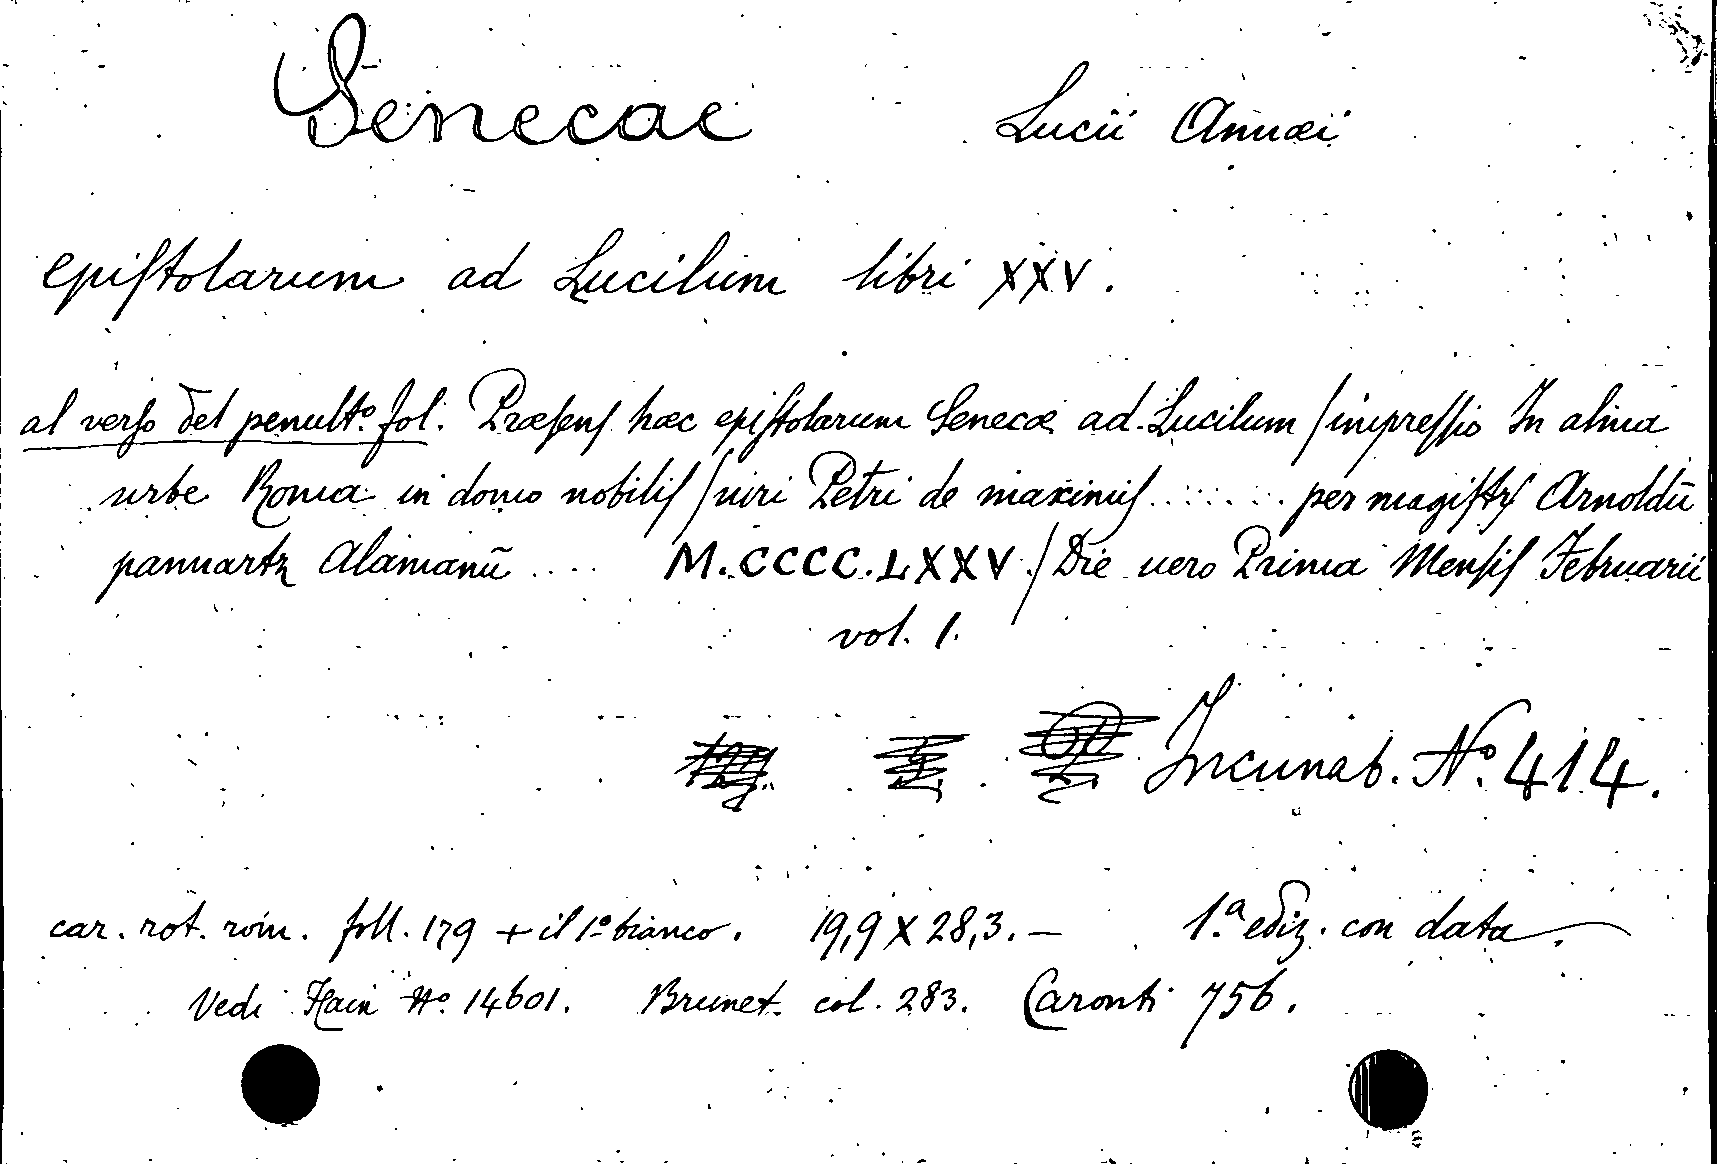 Senecae Lucii Annæi
Epistolarum ad Lucilum libri XXV.
al verso del penult.º fol. Præsens hæc epistolarum Senecæ ad Lucilum / impressio In alma
urbe Roma in domo nobilis / uiri Petri de maximis ........ per magistrū Arnoldū
pannartz Alamanū .... M.CCCC.LXXV. / Die uero Prima Mensis Februarii
vol. 1.
Incunab. Nº. 414.
car. rot. rom. foll. 179 + il 1º bianco. 19,9 X 28,3. — 1.ª ediz. con data.
Vedi Hain Nº 14601. Brunet col. 283. Caronti 756.